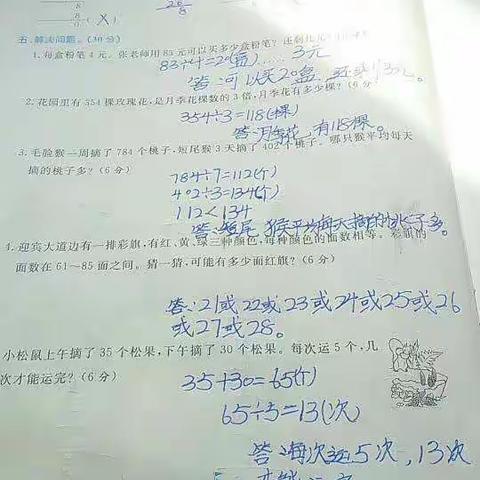 8
8
0 (×)
20
8
五、解决问题。(30分)
1.每盒粉笔4元。张老师用83元可以买多少盒粉笔?还剩几元?
83÷4=20(盒)……3元
答:可以买20盒,还剩3元。
2.花园里有354棵玫瑰花,是月季花棵数的3倍,月季花有多少棵?(6分)
354÷3=118(棵)
答:月季花有118棵。
3.毛脸猴一周摘了784个桃子,短尾猴3天摘了402个桃子。哪只猴平均每天
摘的桃子多?(6分)
784÷7=112(个)
402÷3=134(个)
112<134
答:短尾猴平均每天摘的桃子多。
4.迎宾大道边有一排彩旗,有红、黄、绿三种颜色,每种颜色的面数相等。彩旗的
面数在61~85面之间。猜一猜,可能有多少面红旗?(6分)
答:21或22或23或24或25或26
或27或28。
小松鼠上午摘了35个松果,下午摘了30个松果。每次运5个,几
次才能运完?(6分)
35+30=65(个)
65÷5=13(次)
答:每次运5次,13次